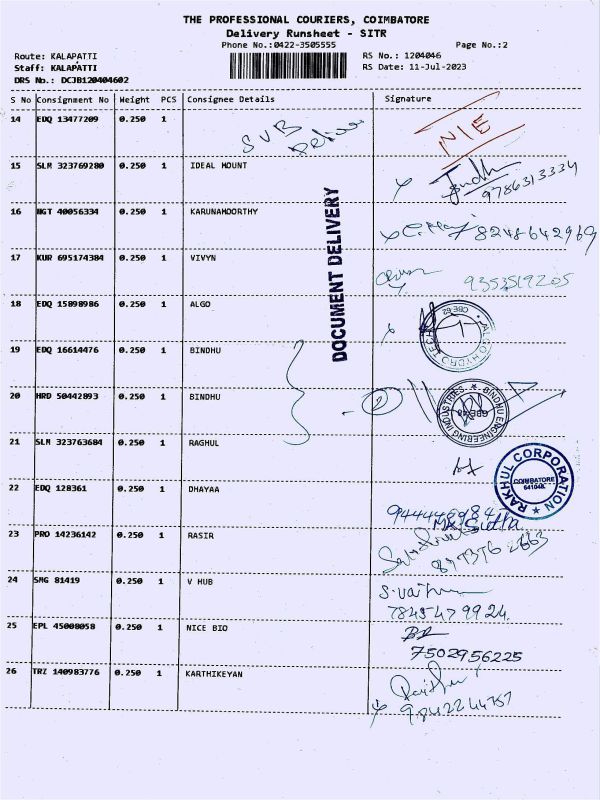 THE PROFESSIONAL COURIERS, COIMBATORE
Delivery Runsheet - SITR
Phone No.:0422-3505555
Page No.:2
Route: KALAPATTI
Staff: KALAPATTI
DRS No.: DCJB120404602
RS No.: 1204046
RS Date: 11-Jul-2023
S No Consignment No Weight PCS Consignee Details Signature
14 EDQ 13477209 0.250 1 SVB N/E
15 SLM 323769280 0.250 1 IDEAL MOUNT 9786313334
16 NGT 40056334 0.250 1 KARUNAMOORTHY 8248642969
17 KUR 695174384 0.250 1 VIVYN 9353519205
DOCUMENT DELIVERY
18 EDQ 15898986 0.250 1 ALGO
ALGO HYDRO TECH CBE-62
19 EDQ 16614476 0.250 1 BINDHU
20 HRD 50442893 0.250 1 BINDHU 2
BINDHU ENGINEERING INDUSTRIES CBE-48
21 SLM 323763684 0.250 1 RAGHUL
RAKHUL CORPORATION COIMBATORE
22 EDQ 128361 0.250 1 DHAYAA
23 PRO 14236142 0.250 1 RASIR
24 SMG 81419 0.250 1 V HUB
7845479924
25 EPL 45008058 0.250 1 NICE BIO
7502956225
26 TRZ 140983776 0.250 1 KARTHIKEYAN